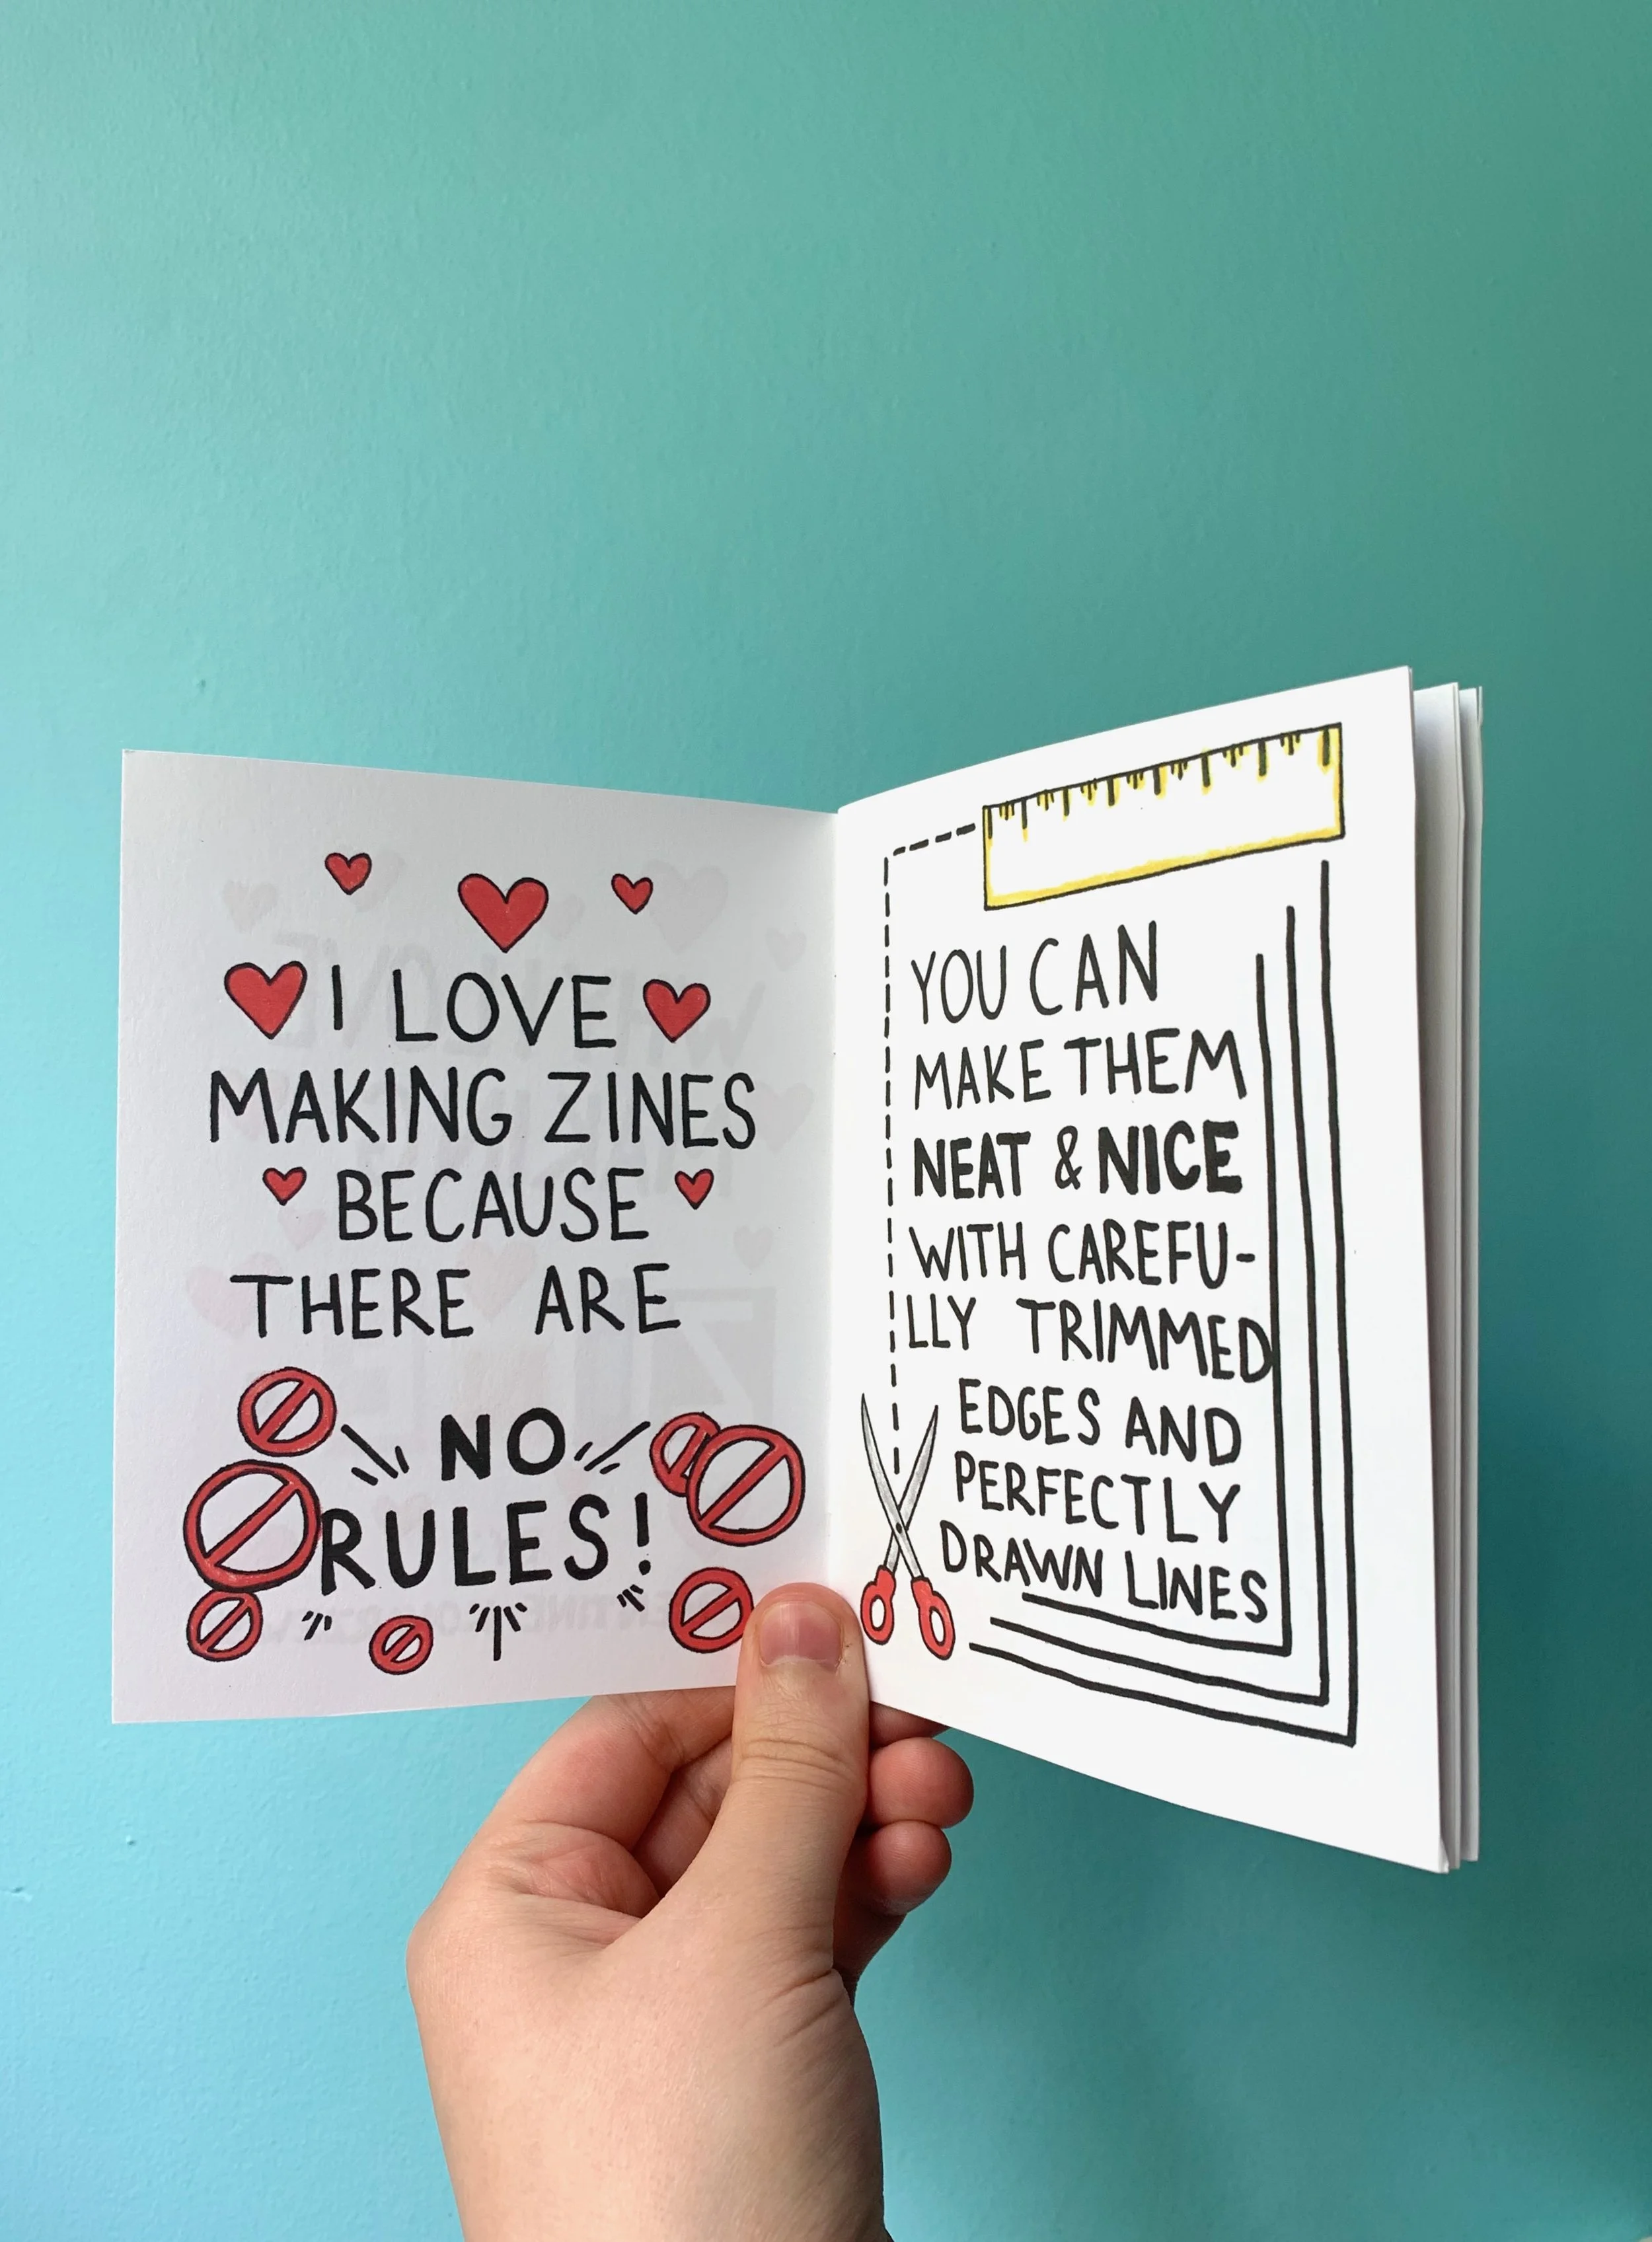 I LOVE
MAKING ZINES
BECAUSE
THERE ARE
NO
RULES!
YOU CAN
MAKE THEM
NEAT & NICE
WITH CAREFU-
LLY TRIMMED
EDGES AND
PERFECTLY
DRAWN LINES